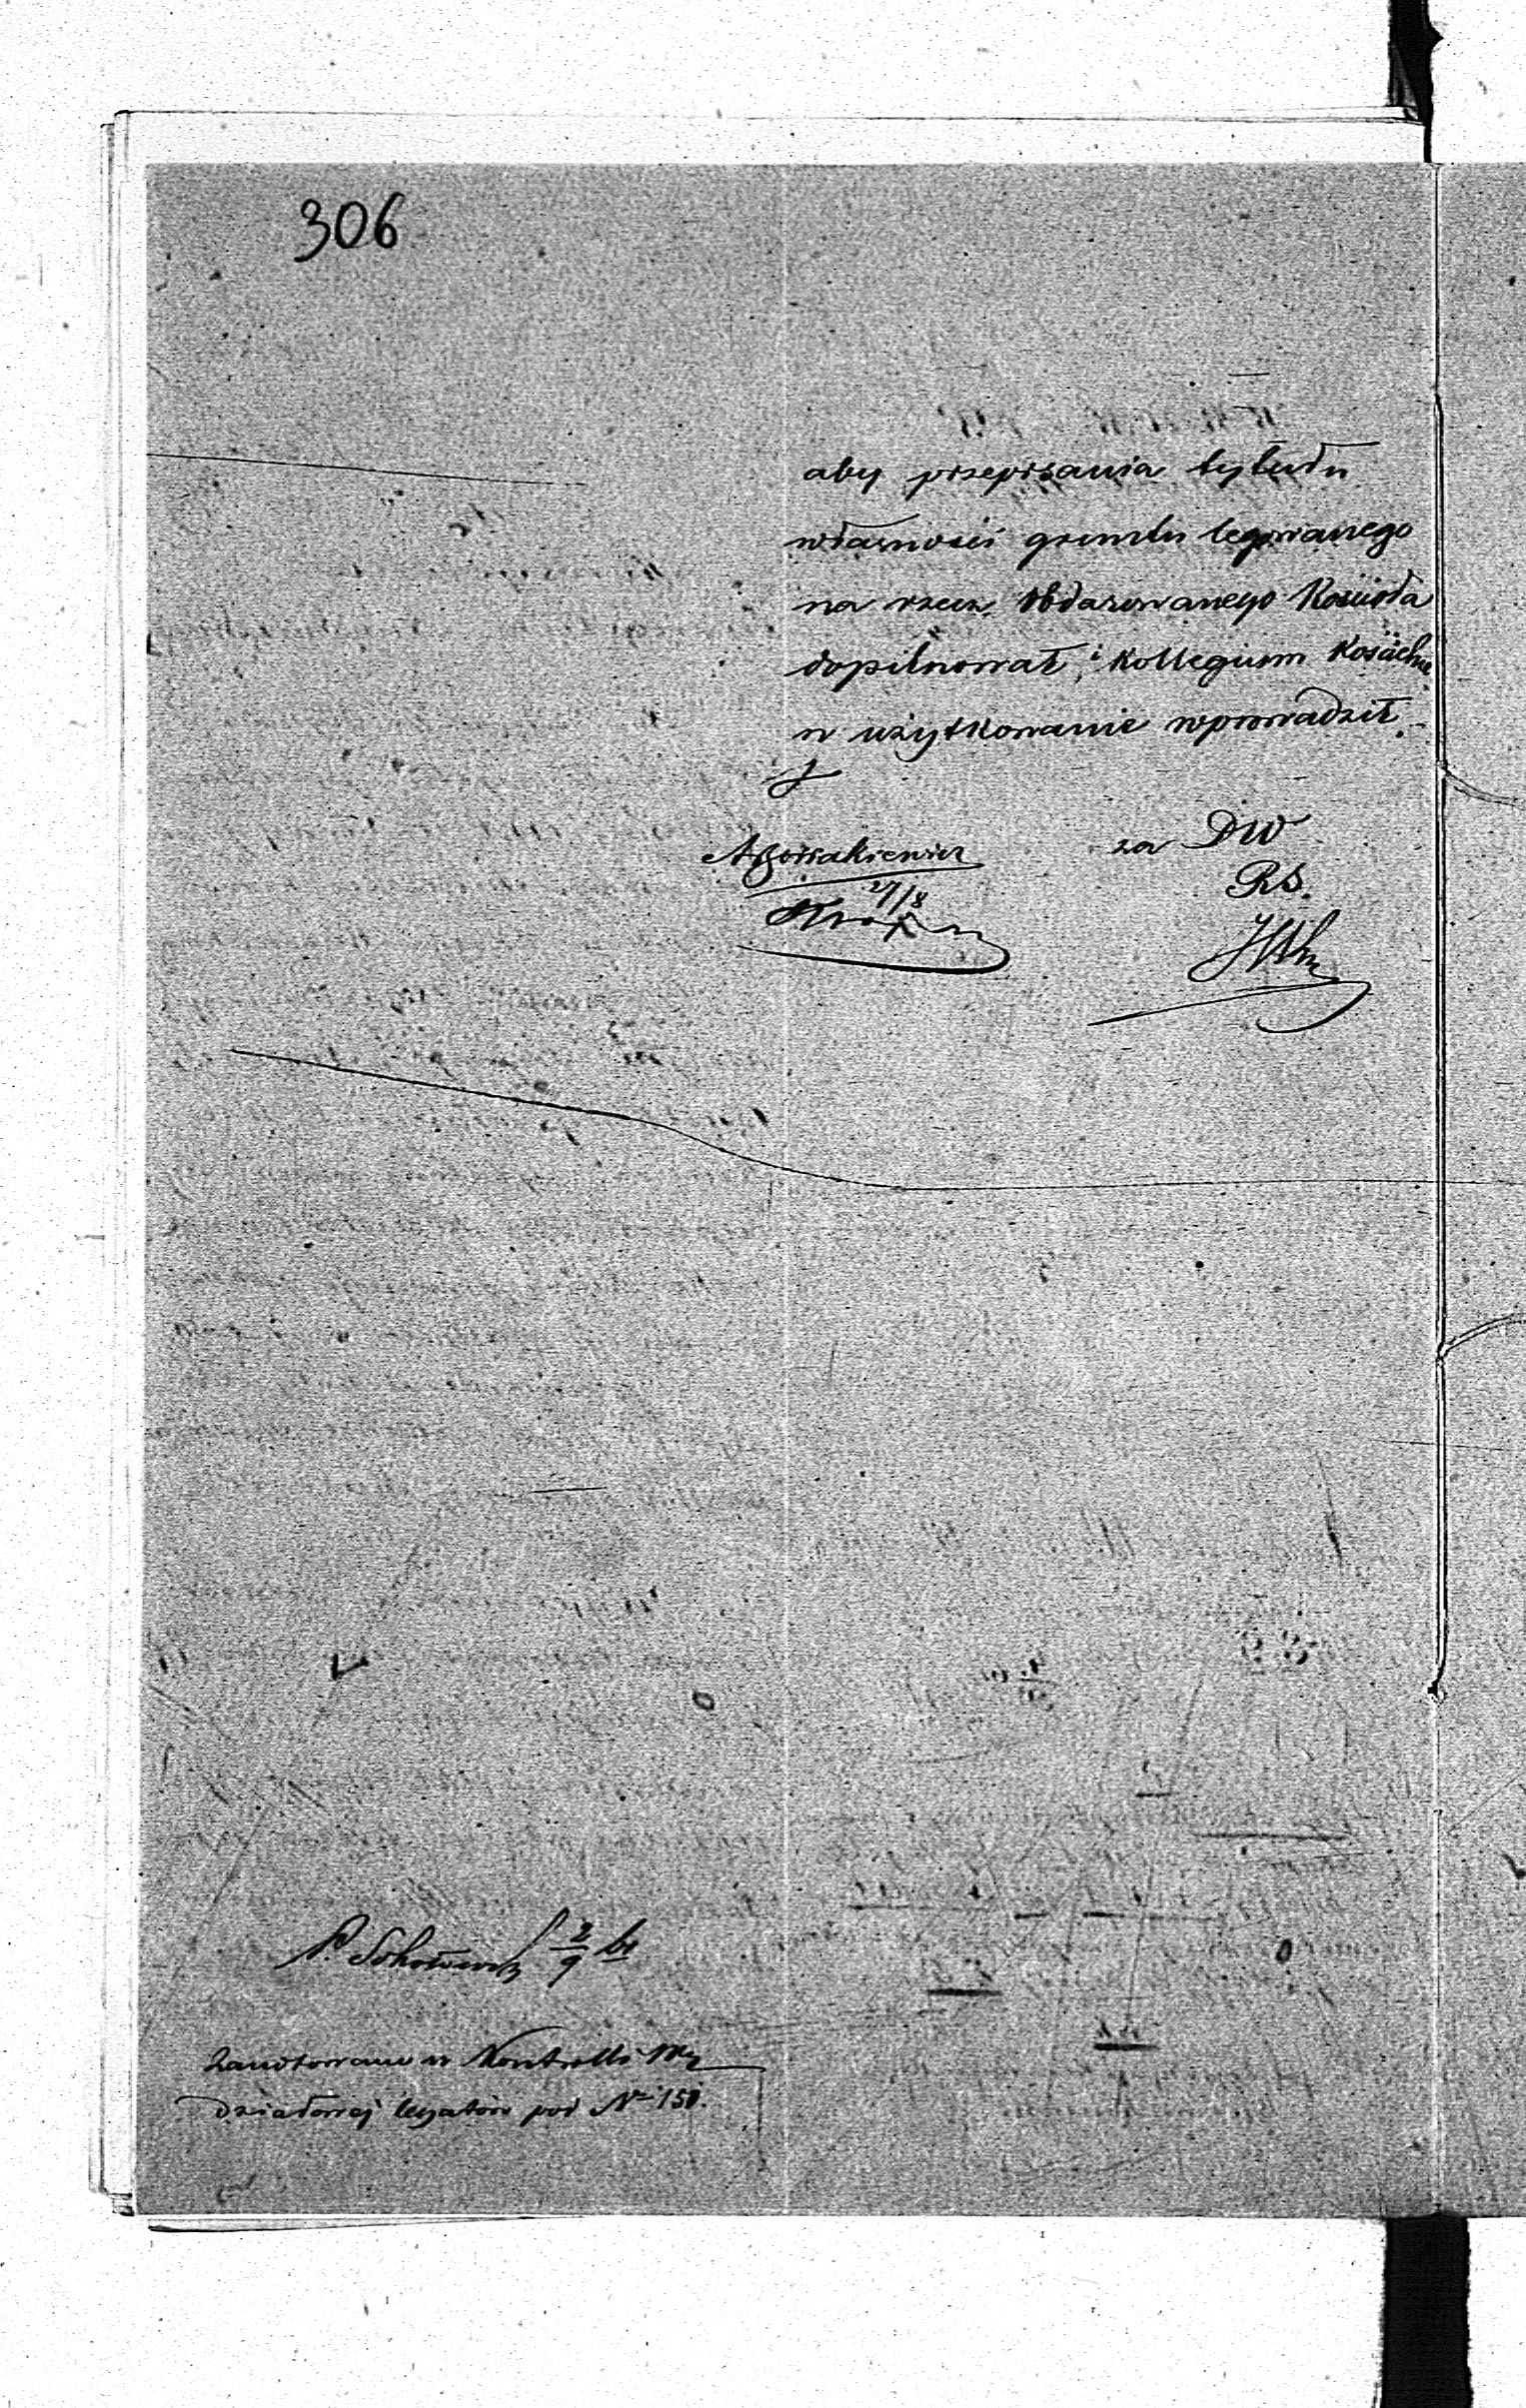 306
aby przepisania tytułu
własności gruntu legowanego
na rzecz obdarowanego Kościoła
dopilnował, i Kollegium Kościelne
w użytkowanie wprowadził.
za DW
27/8
RS.
2/9
Zanotowano w Kontrolli Wy
działowej legatów pod Nr 150.